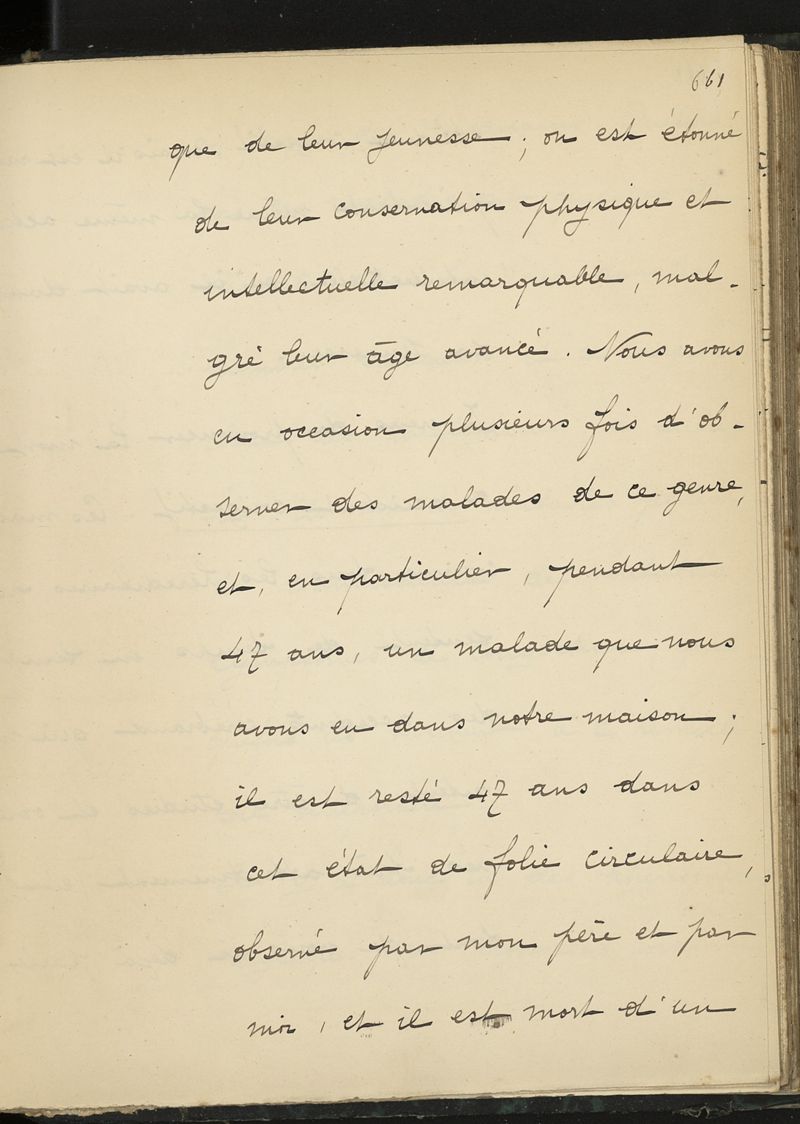 661
que de leur jeunesse ; on est étonné
de leur conservation physique et
intellectuelle remarquable, mal-
gré leur âge avancé. Nous avons
eu occasion plusieurs fois d'ob-
server des malades de ce genre,
et, en particulier, pendant
47 ans, un malade que nous
avons eu dans notre maison ;
il est resté 47 ans dans
cet état de folie circulaire,
observé par mon père et par
moi, et il est mort d'un